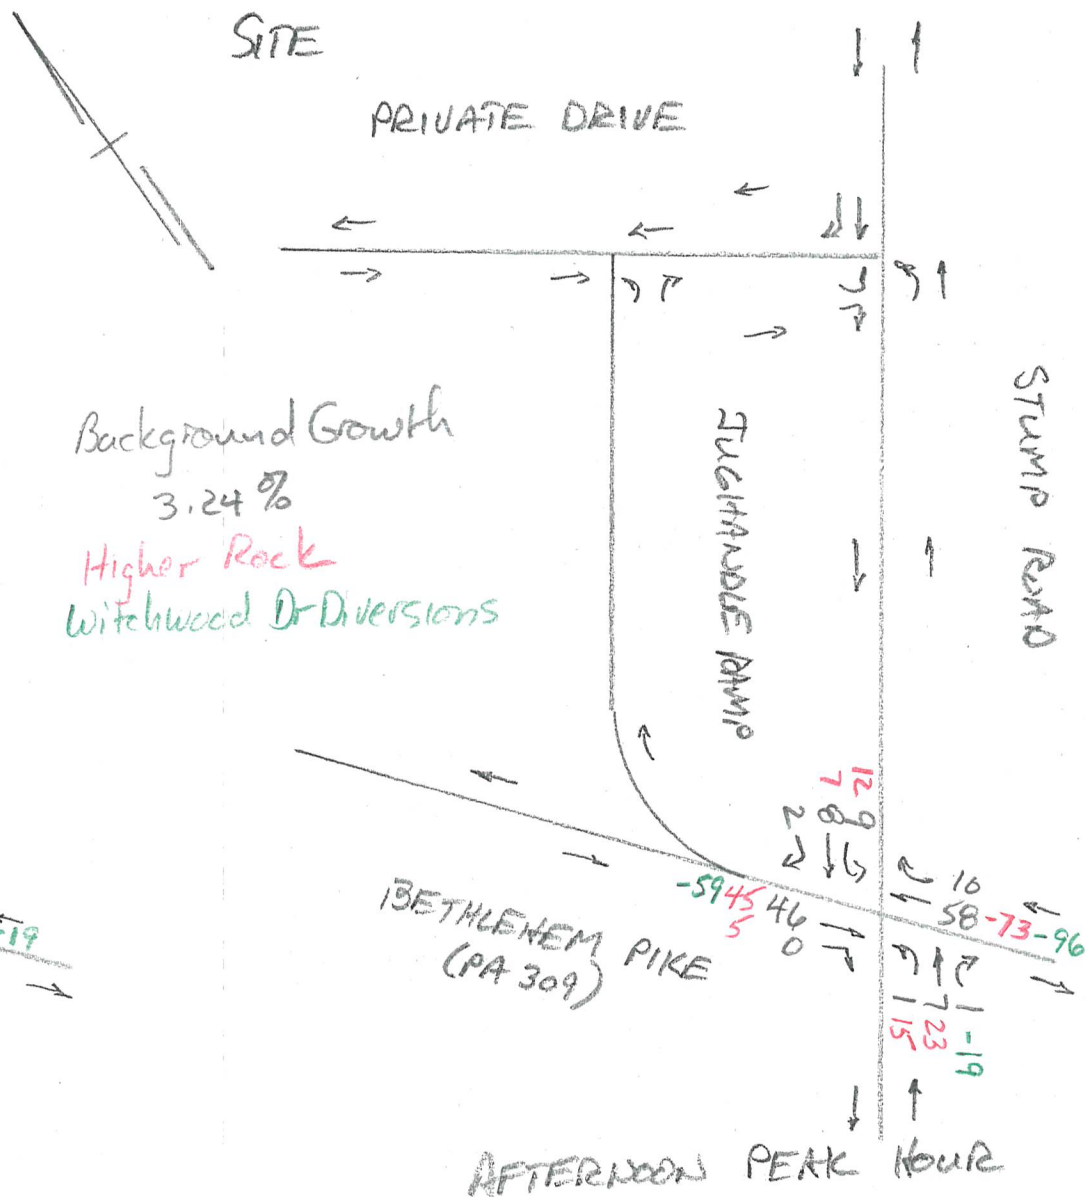 SITE
PRIVATE DRIVE
Background Growth
3.24%
Higher Rock
Witchwood Dr Diversions
JUGHANDLE RAMP
STUMP ROAD
12
7
9
8
2
-59 45 46
5 0
10
58 -73 -96
1 7 1
15 23 -19
BETHLEHEM PIKE
(PA 309)
-19
AFTERNOON PEAK HOUR